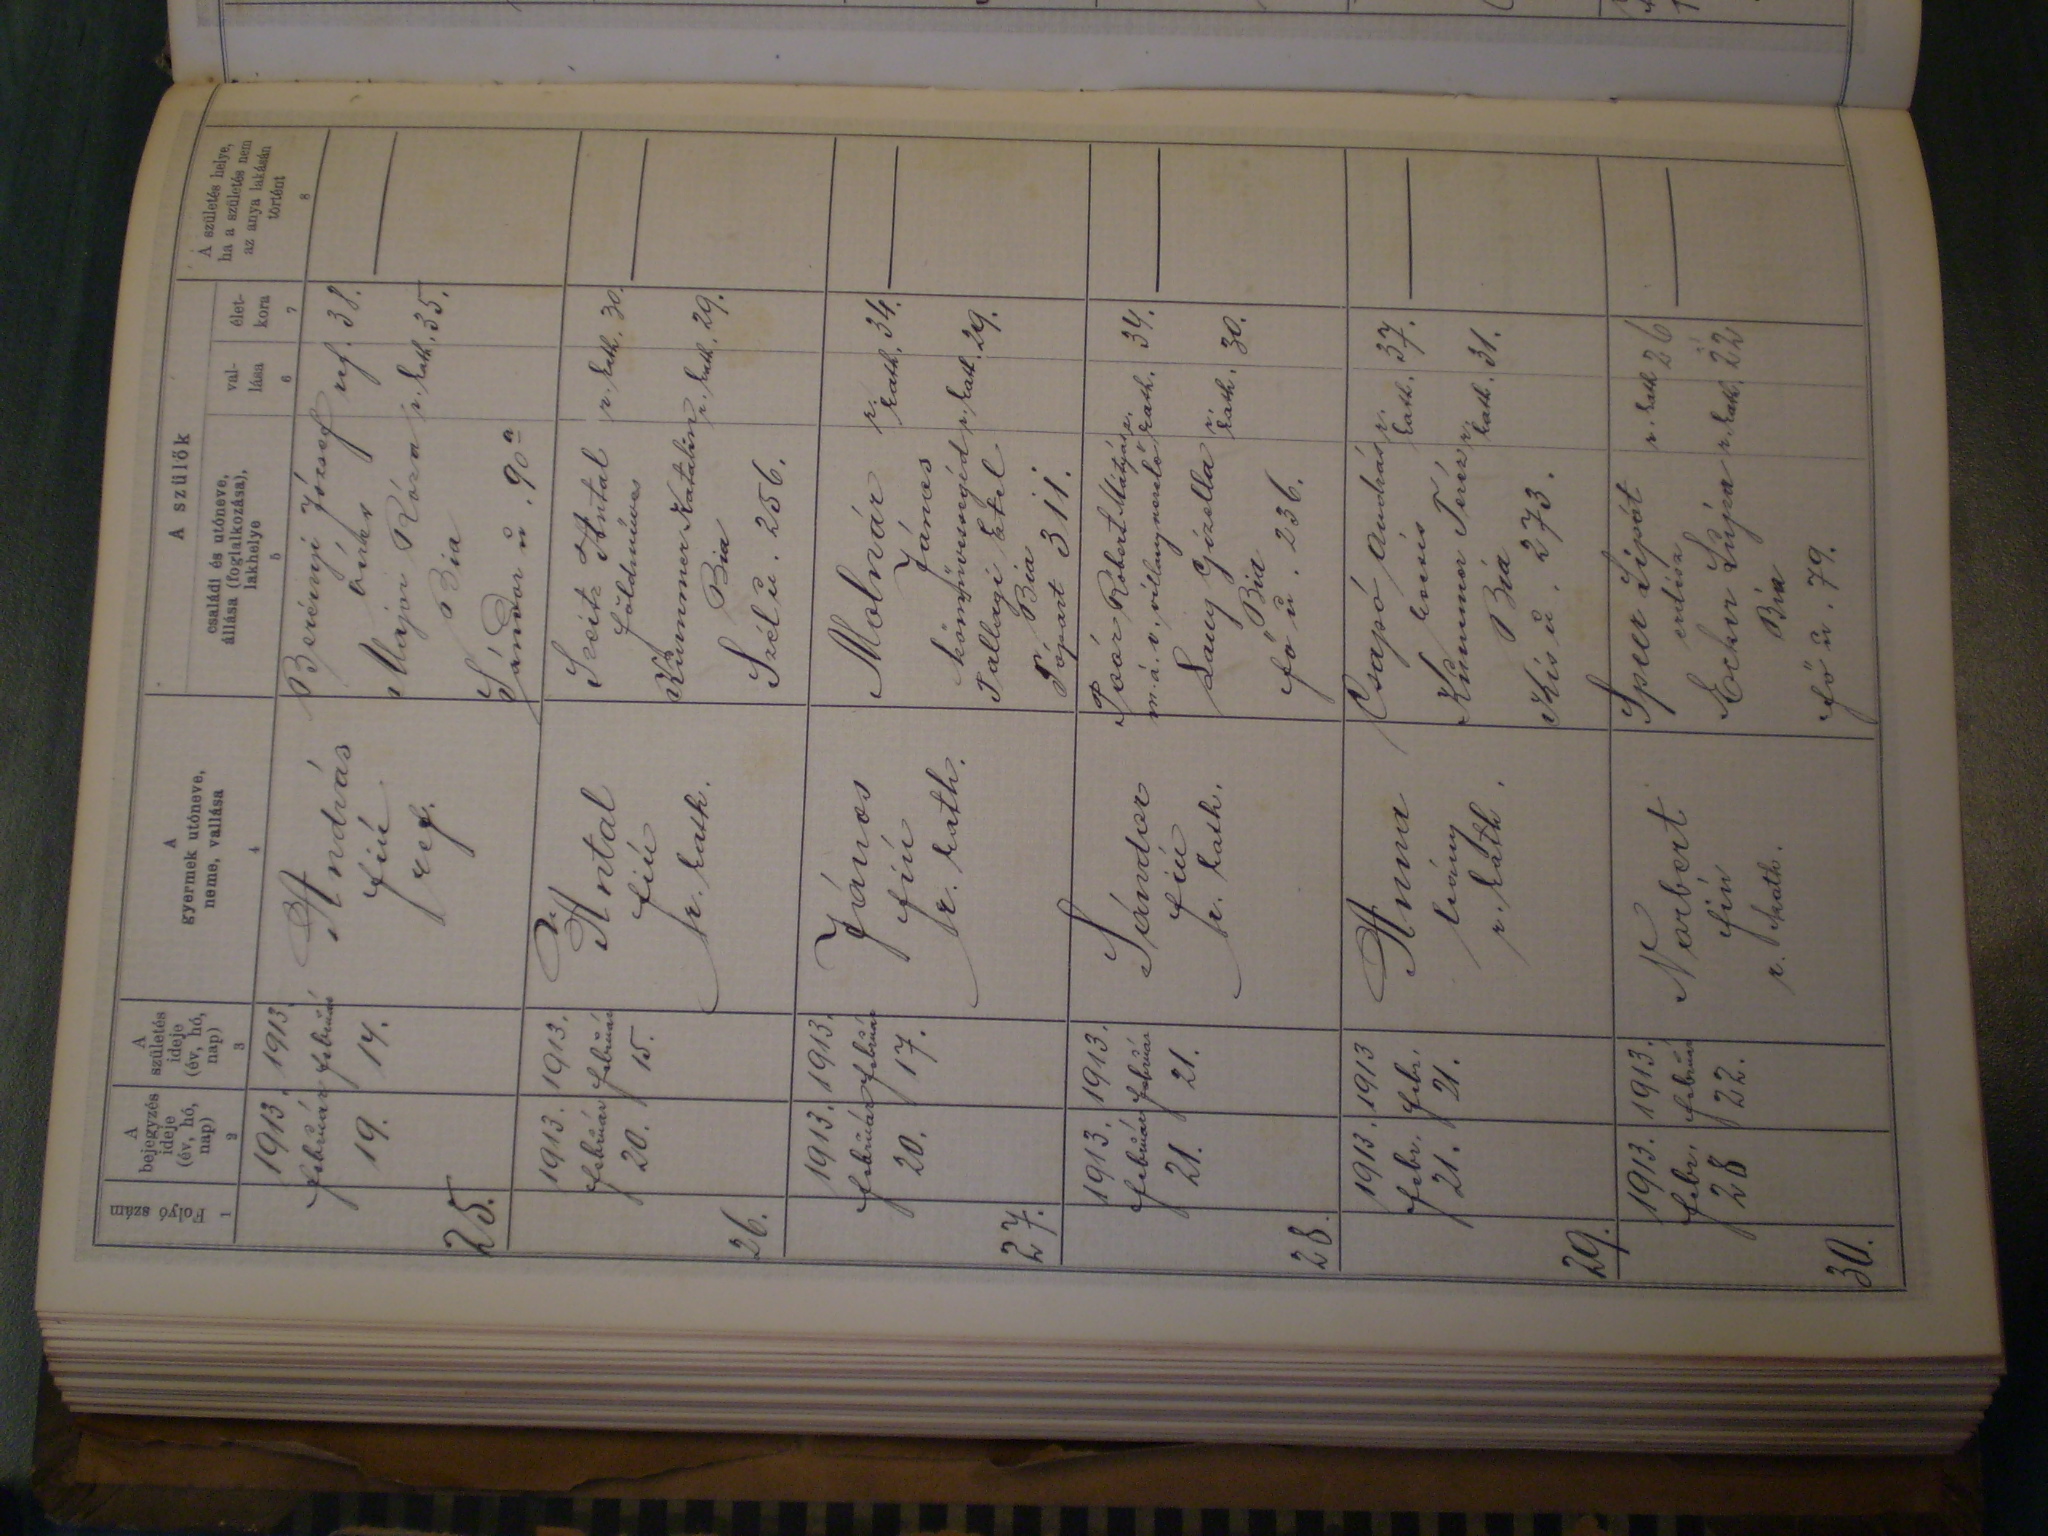 Folyó szám
1
A
bejegyzés
ideje
(év, hó,
nap)
2
A
születés
ideje
(év, hó,
nap)
3
A
gyermek utóneve,
neme, vallása
4
A szülők
családi és utóneve,
állása (foglalkozása),
lakhelye
5
val-
lása
6
élet-
kora
7
A születés helye,
ha a születés nem
az anya lakásán
történt
8
25.
1913.
február
19.
1913.
február
14.
András
fiú
ref.
Berényi József ref. 38.
Major Róza r. kath. 35.
Bia
Sándor u. 90 a
26.
1913.
február
20.
1913.
február
15.
Antal
fiú
r. kath.
Szeitz Antal r. kath. 30.
földmíves
Kummer Katalin r. kath. 29.
Bia
Szél u. 256.
27.
1913.
február
20.
1913.
február
17.
János
fiú
r. kath.
Molnár
János r. kath. 34.
kőművessegéd
Pallagi Etel r. kath. 29.
Bia
Tópart 311.
28.
1913.
február
21.
1913.
február
21.
Sándor
fiú
r. kath.
Poór Robert Mátyás r. kath. 34.
m. á. v. villanyszerelő
Lang Gizella r. kath. 30.
Bia
fő u. 236.
29.
1913.
febr.
21.
1913
febr.
21.
Anna
leány
r. kath.
Csapó András r. kath. 37.
kocsis
Kummer Teréz r. kath. 31.
Bia
Kis u. 273.
30.
1913.
febr.
28
1913.
február
22.
Norbert
fiú
r. kath.
Speer Lipót r. kath 26
erdész
Ecker Lujza r. kath. 22
Bia
fő u. 79.